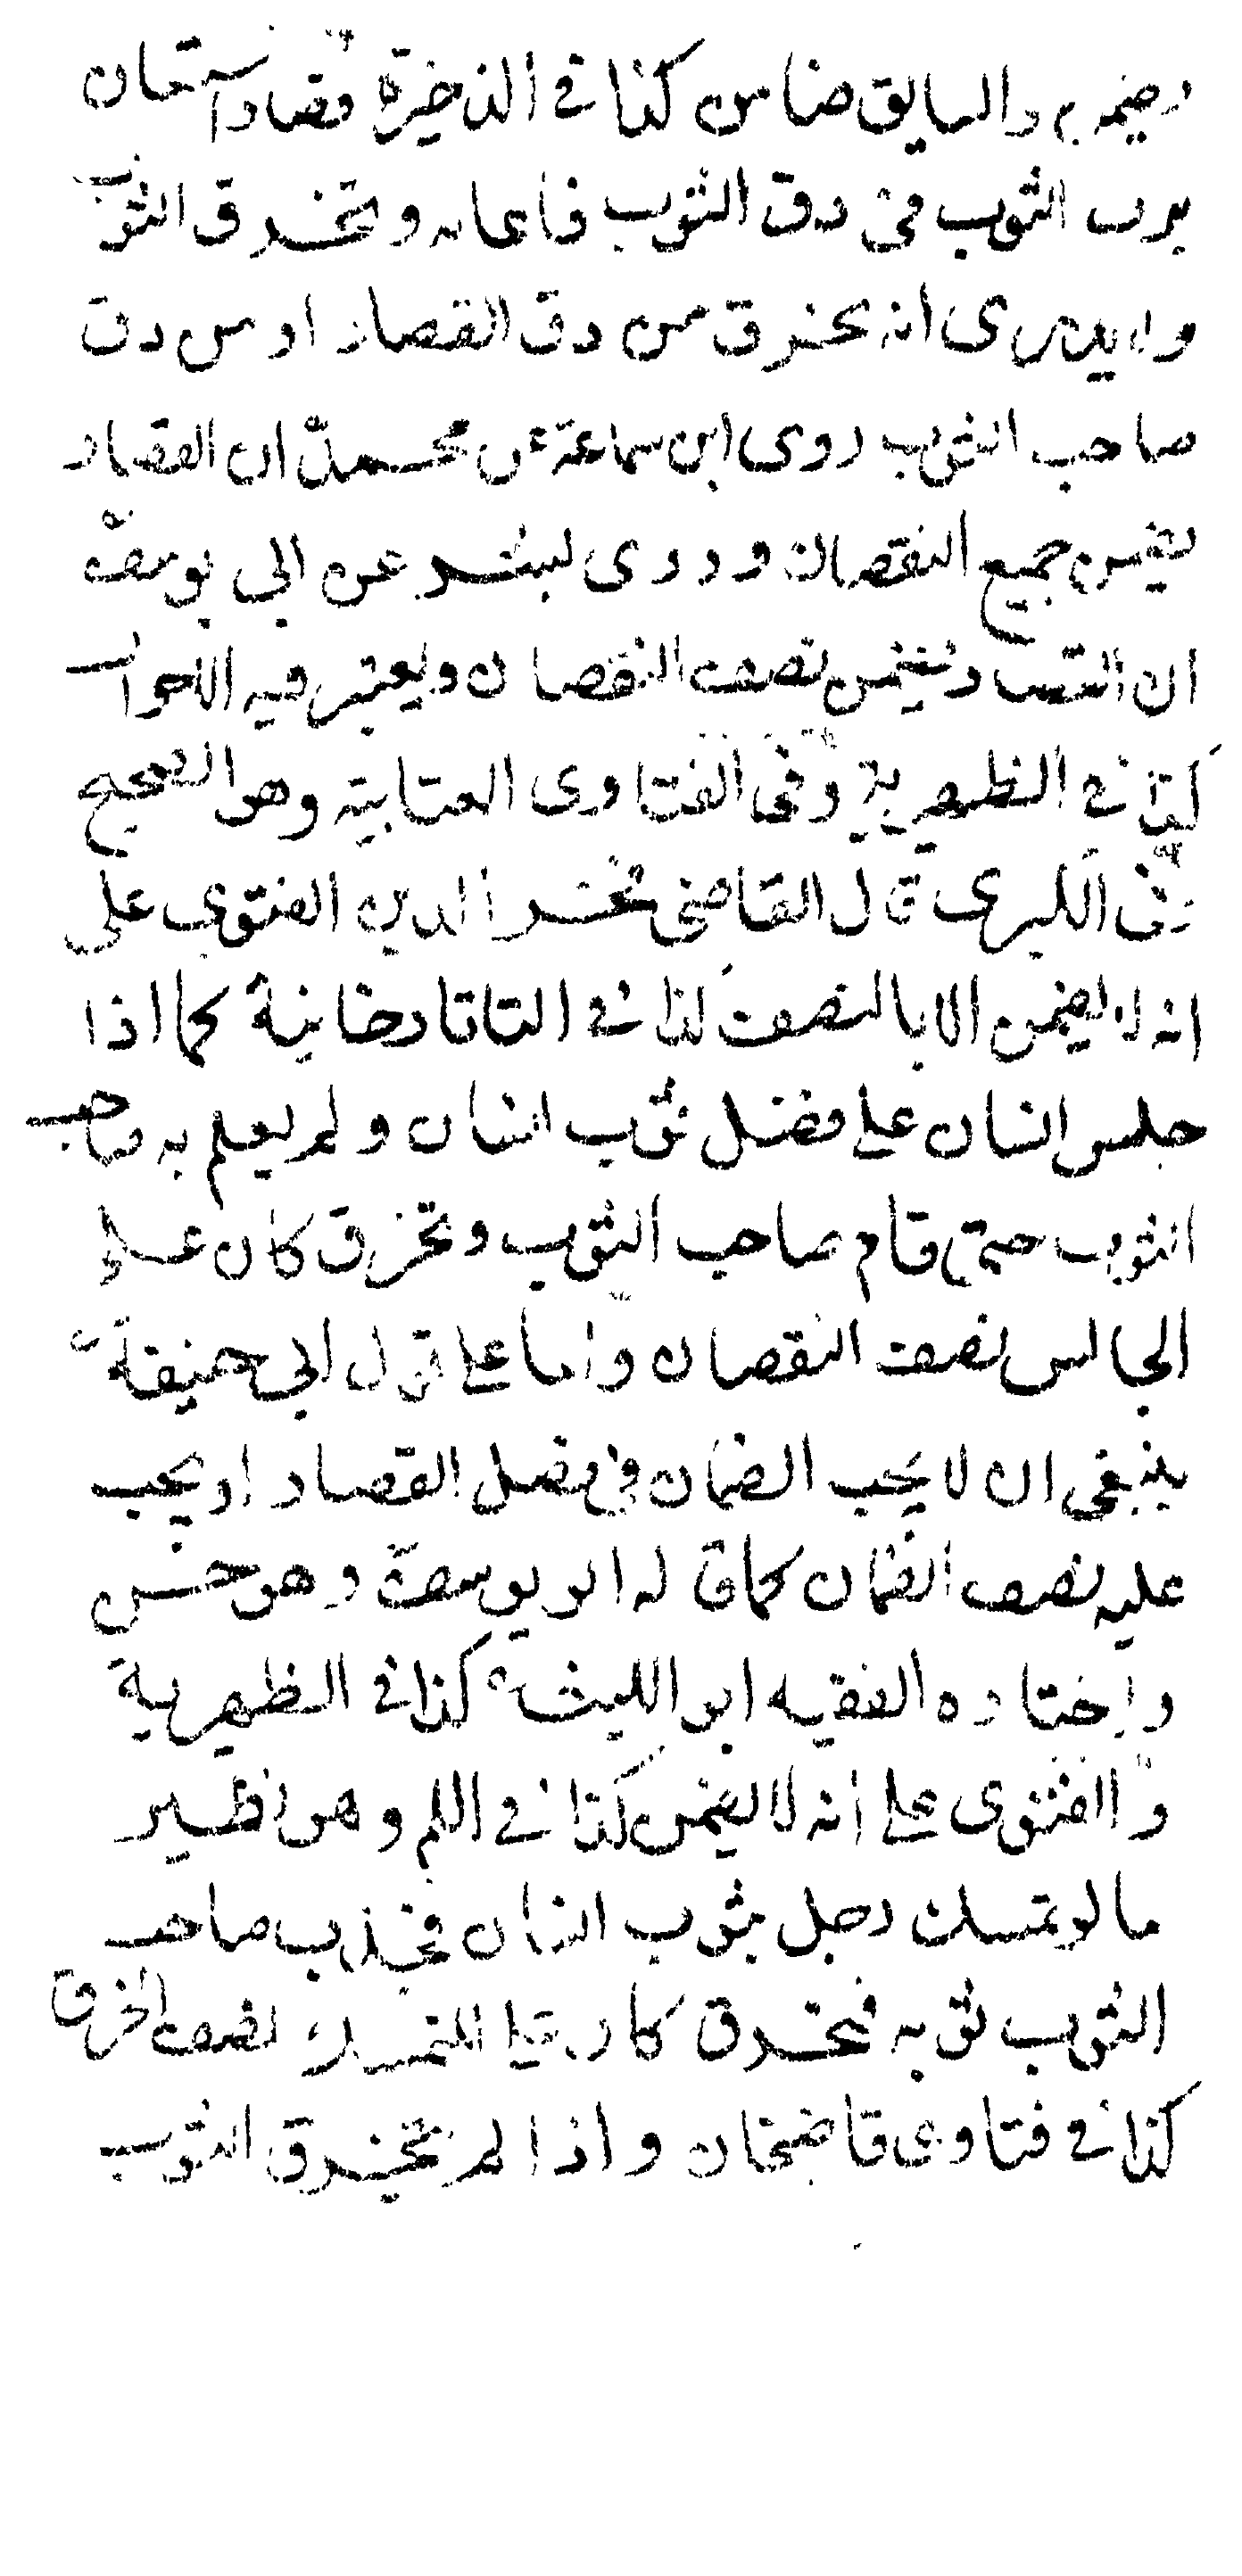 والسايق ضامن كذا فى الذخيرة قصار استعان
برب الثوب فى دق الثوب فاعانه وتخرق الثوب
ولا يدرى انه تخرق من دق القصار او من دق
صاحب الثوب روى ابن سماعة عن محمد ان القصار
يضمن جميع النقصان وروى بشر عن ابى يوسف
ان القصار يضمن نصف النقصان ويعتبر فيه الاحوال
كذا فى الظهيرية وفى الفتاوى العتابية وهو الصحيح
وفى الكبرى قال القاضى فخر الدين الفتوى على
انه لا يضمن الا بالنصف كذا فى التاتارخانية كما اذا
جلس انسان على فضل ثوب انسان ولم يعلم به صاحب
الثوب حتى قام صاحب الثوب وتخرق كان على
الجالس نصف النقصان واما على قول ابى حنيفة
ينبغى ان لا يجب الضمان فى فصل القصار او يجب
عليه نصف الضمان كما قاله ابو يوسف وهو حسن
واختاره الفقيه ابو الليث كذا فى الظهيرية
والفتوى على انه لا يضمن كذا فى وهو نظير
ما لو تمسك رجل بثوب انسان فجذب صاحب
الثوب ثوبه فتخرق كان على المتمسك نصف الخرق
كذا فى فتاوى قاضيخان واذا لم يتخرق الثوب